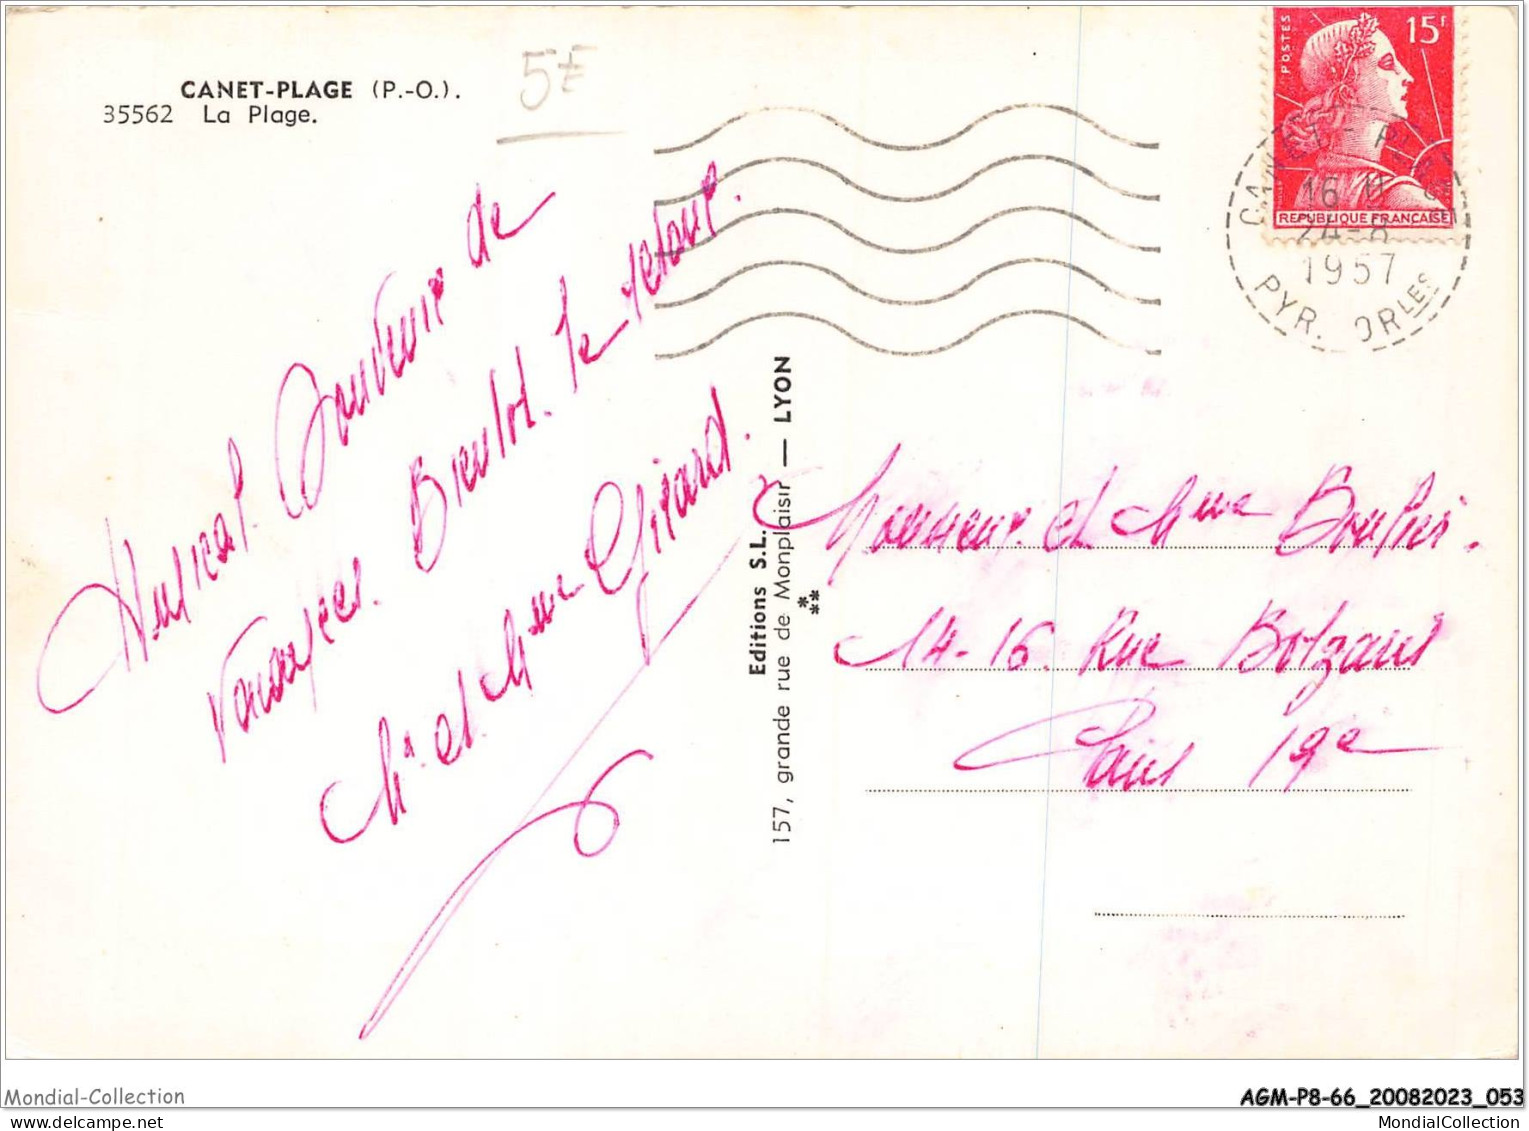 CANET-PLAGE (P.-O.).
35562 La Plage.
5€
Amical Souvenir de
vacances. Bientot. le retour.
Mr. et Mme Girard.
Editions S.L. — LYON
157, grande rue de Monplaisir
POSTES
15F
REPUBLIQUE FRANÇAISE
CANET-PLAGE
16 H
24-8
1957
PYR. ORLES
Monsieur et Mme
14-16. Rue Botzaris
Paris 19e
Mondial-Collection
AGM-P8-66_20082023_053
MondialCollection